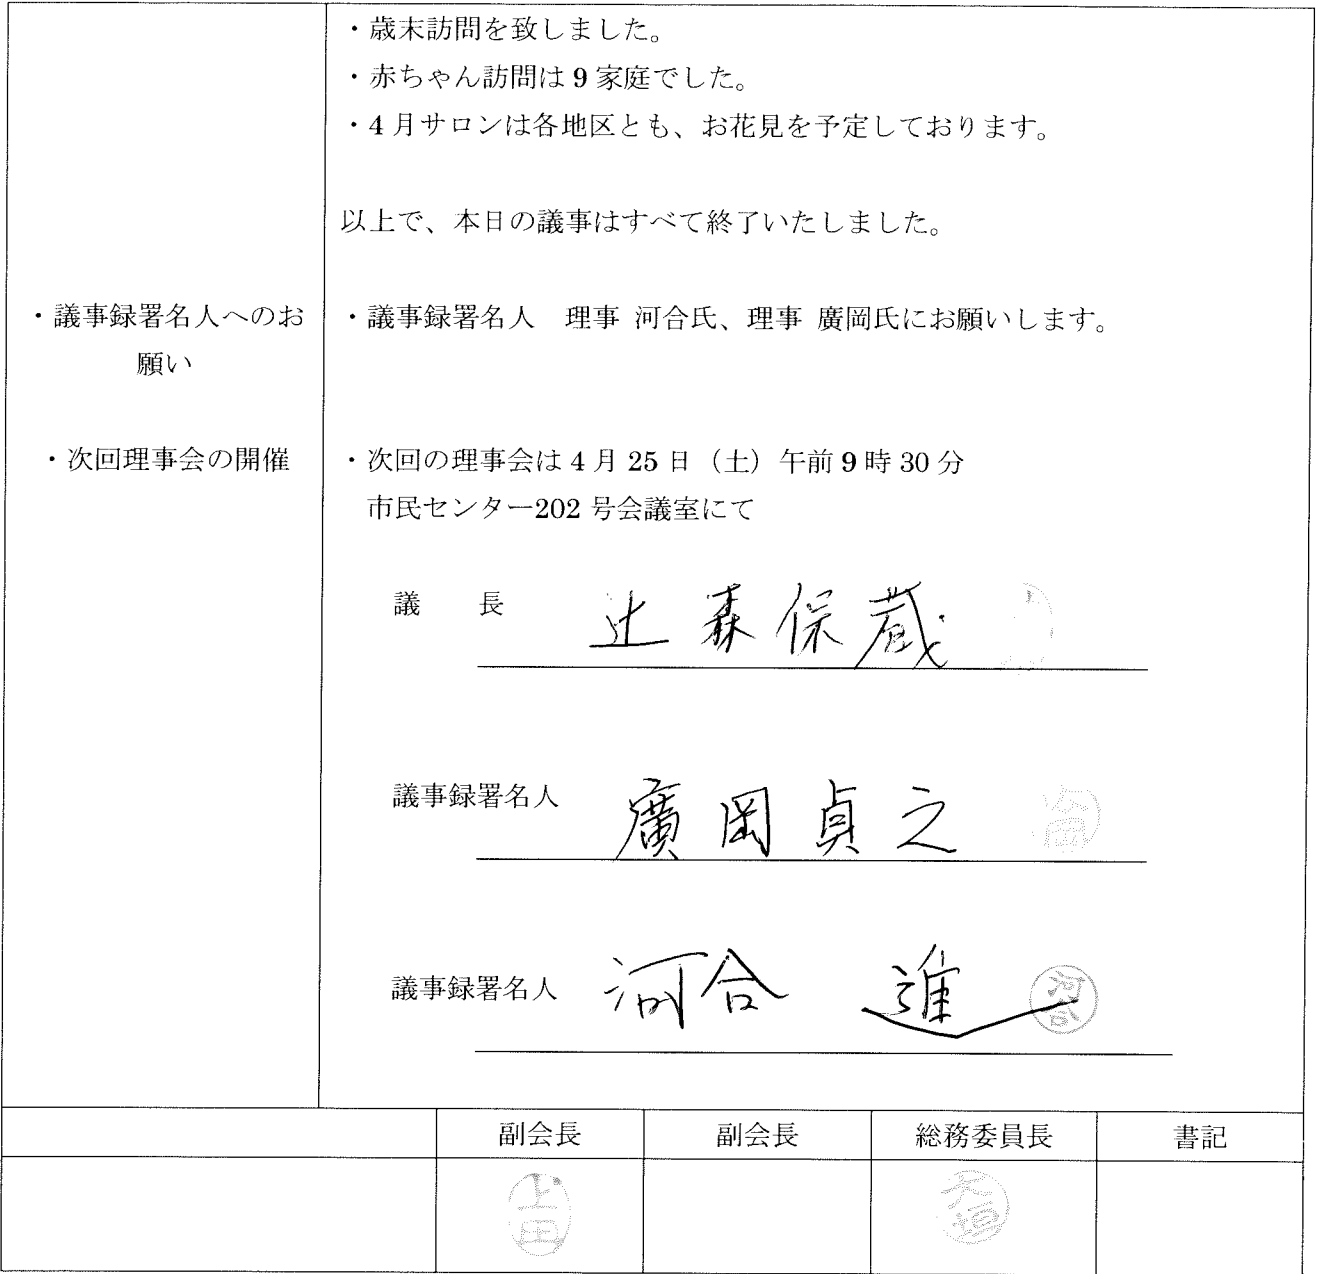 ・歳末訪問を致しました。
・赤ちゃん訪問は 9 家庭でした。
・4 月サロンは各地区とも、お花見を予定しております。
以上で、本日の議事はすべて終了いたしました。
・議事録署名人へのお
願い
・議事録署名人　理事 河合氏、理事 廣岡氏にお願いします。
・次回理事会の開催
・次回の理事会は 4 月 25 日（土）午前 9 時 30 分
市民センター202 号会議室にて
議　　長　辻森保蔵
議事録署名人　廣岡貞之
議事録署名人　河合　進　河合
副会長　副会長　総務委員長　書記
上田　大垣